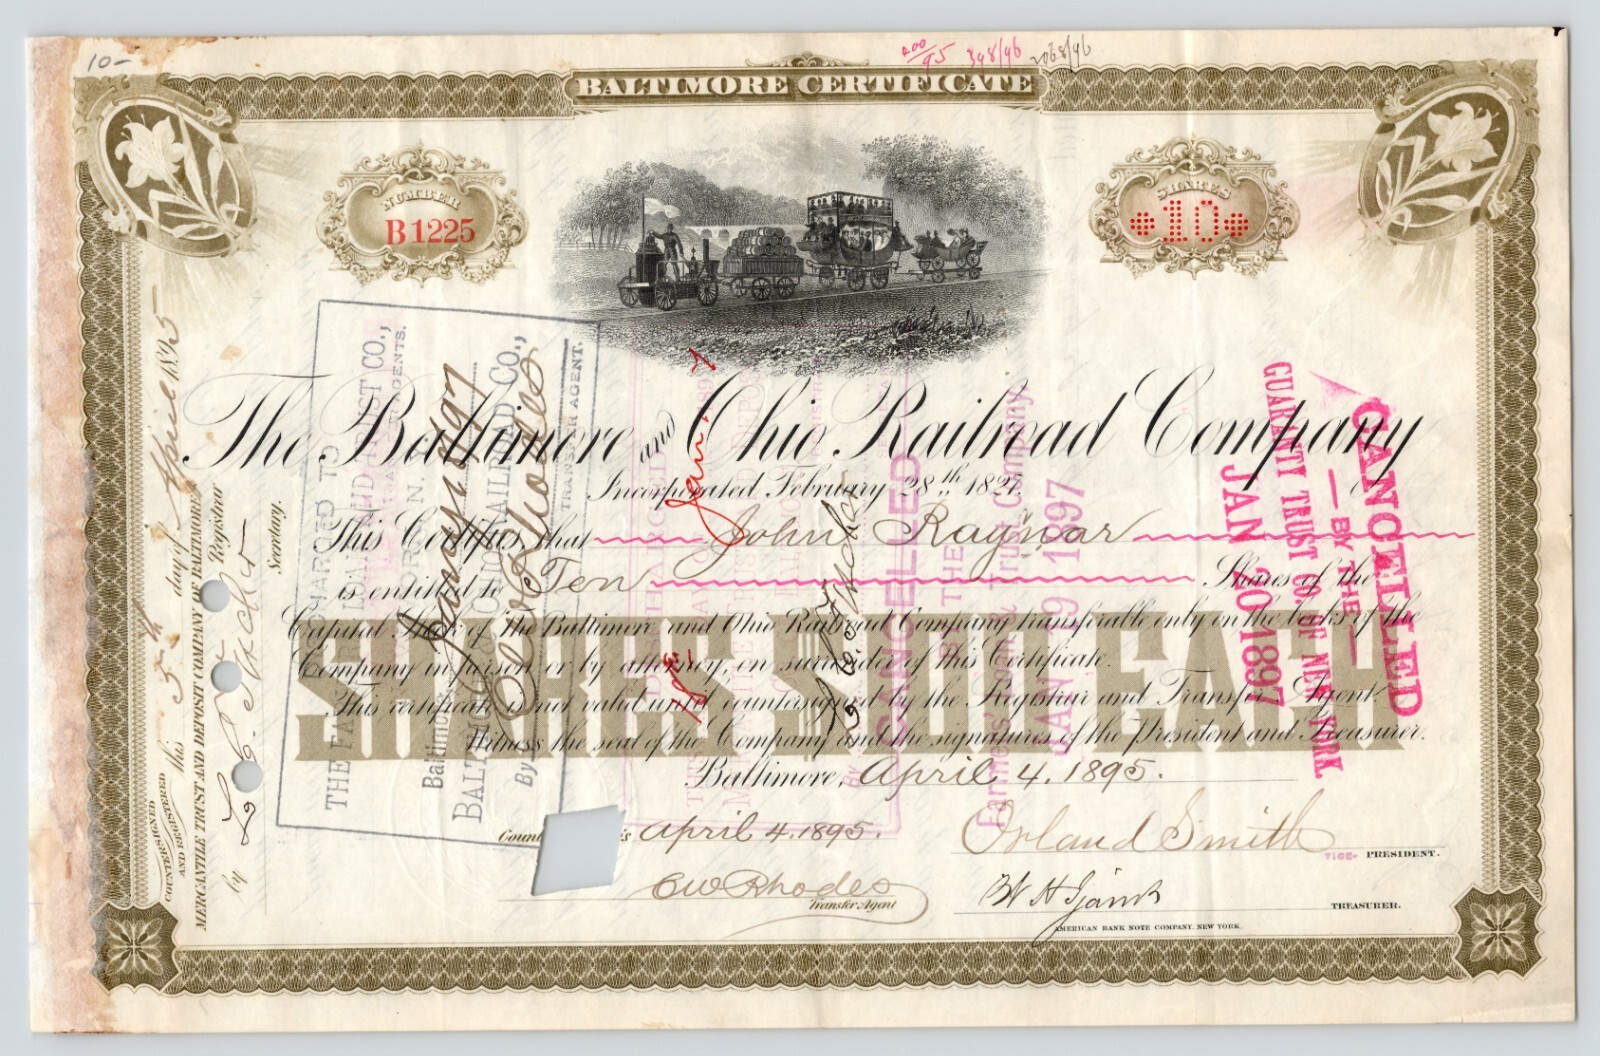 10-
400/95 398/96 2068/96
BALTIMORE CERTIFICATE
NUMBER
B1225
SHARES
10
The Baltimore and Ohio Railroad Company
Incorporated February 28th, 1827.
This Certifies that John Raynor
is entitled to Ten Shares of the
Capital Stock of The Baltimore and Ohio Railroad Company transferable only on the books of the
Company in person or by attorney, on surrender of this Certificate.
This certificate is not valid until countersigned by the Registrar and Transfer Agent.
Witness the seal of the Company and the signatures of the President and Treasurer.
Baltimore, April 4. 1895.
SHARES $100 EACH
April 4. 1895.
Orland Smith
VICE- PRESIDENT.
C W Rhodes
Transfer Agent
W H Ijams
TREASURER.
AMERICAN BANK NOTE COMPANY, NEW YORK.
COUNTERSIGNED
AND REGISTERED this 5th day of April 1895
MERCANTILE TRUST AND DEPOSIT COMPANY OF BALTIMORE, Registrar
by
Secretary.
THE FARMERS' LOAN AND TRUST CO.,
Baltimore
BALTIMORE & OHIO RAILROAD CO.,
By C W Rhodes
TRANSFER AGENT.
CANCELLED
BY THE
Farmers' Loan & Trust Company
JAN 19 1897
CANCELLED
— BY THE —
GUARANTY TRUST CO. OF NEW YORK
JAN 20 1897